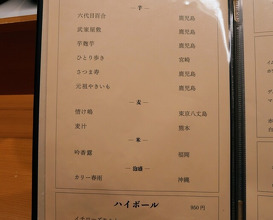 ― 芋 ―
六代目百合 鹿児島
武家屋敷 鹿児島
芋麹芋 鹿児島
ひとり歩き 宮崎
さつま寿 鹿児島
元祖やきいも 鹿児島
― 麦 ―
情け嶋 東京八丈島
麦汁 熊本
― 米 ―
吟香露 福岡
― 泡盛 ―
カリー春雨 沖縄
ハイボール 960円